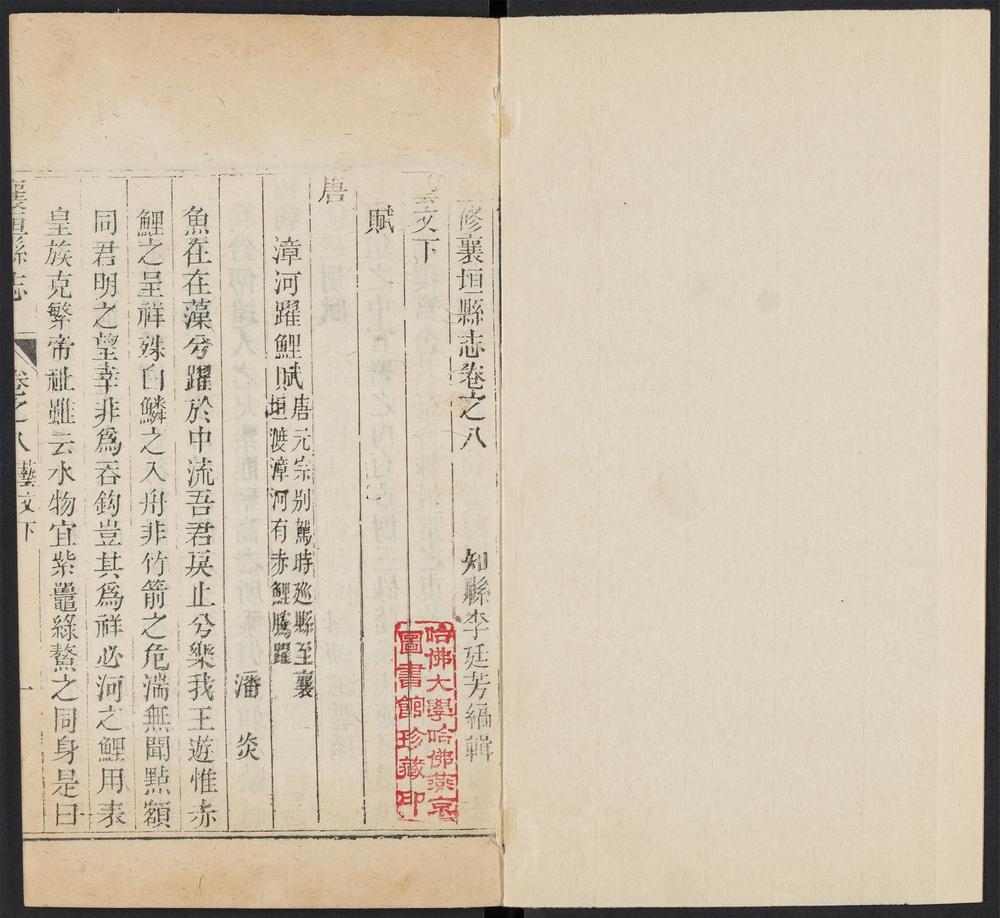 修襄垣縣志卷之八　知縣李廷芳編輯
文下
賦
唐
漳河躍鯉賦
唐元宗别駕時廵縣至襄
垣渡漳河有赤鯉騰躍
潘炎
魚在在藻兮躍於中流吾君戾止兮樂我王遊惟赤
鯉之呈祥殊白鱗之入舟非竹箭之危湍無聞點額
同君明之望幸非爲吞鈎豈其爲祥必河之鯉用表
皇族克繁帝祉雖云水物宜紫鼉綠鰲之同身是曰
襄垣縣志　卷之八藝文下　一
哈佛大學哈佛燕京
圖書館珍藏印